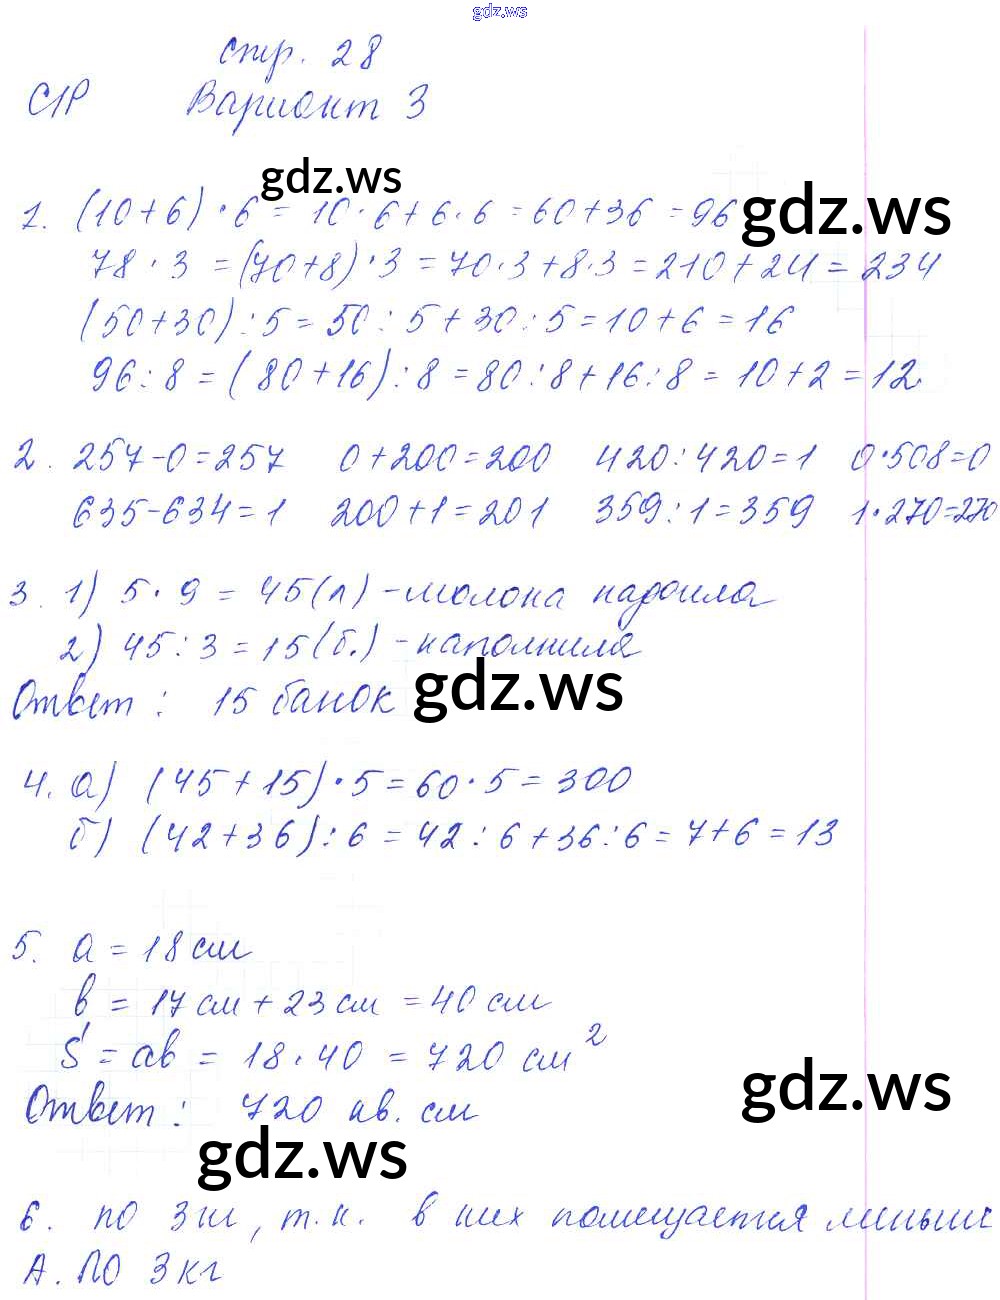 gdz.ws
стр. 28
С/Р Вариант 3
gdz.ws
1. (10+6)·6=10·6+6·6=60+36=96
gdz.ws
78·3=(70+8)·3=70·3+8·3=210+24=234
(50+30):5=50:5+30:5=10+6=16
96:8=(80+16):8=80:8+16:8=10+2=12.
2. 257-0=257 0+200=200 420:420=1 0·508=0
635-634=1 200+1=201 359:1=359 1·270=270
3. 1) 5·9=45(л)-молока надоила
2) 45:3=15(б.)-наполнила
Ответ: 15 банок
gdz.ws
4. а) (45+15)·5=60·5=300
б) (42+36):6=42:6+36:6=7+6=13
5. a=18см
b=17см+23см=40см
S=ab=18·40=720 см²
Ответ: 720 кв. см
gdz.ws
gdz.ws
6. по 3кг, т.к. в них помещается меньше
А. По 3кг